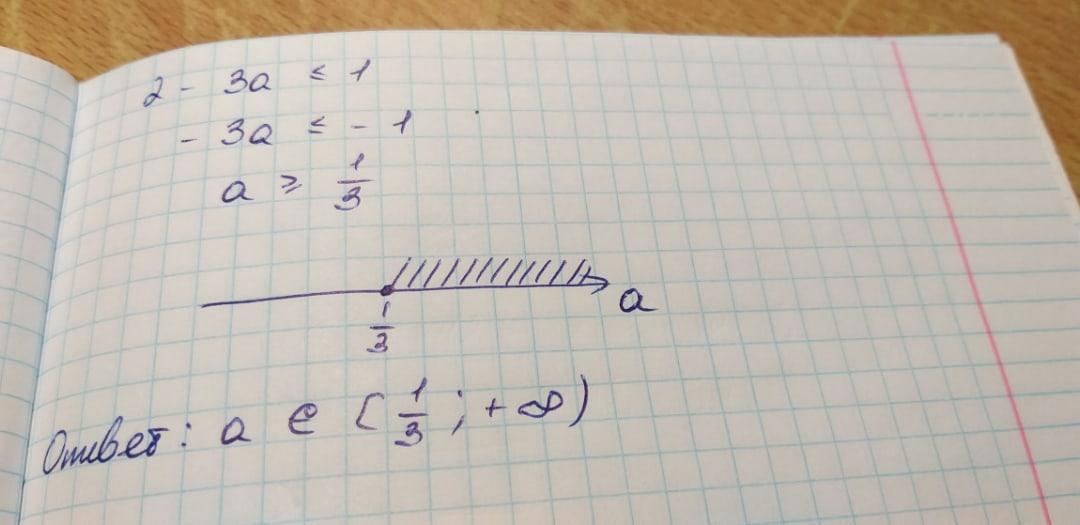 2 - 3a ≤ 1
- 3a ≤ - 1
a ≥ 1/3
1/3 a
Ответ: a ∈ [1/3; +∞)